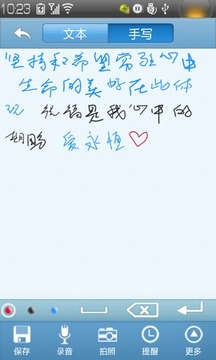 10:23
文本 手写
坚持和希望常驻心中
生命的美好在此体
现 祝福是我心中的
期盼 爱永恒
保存 录音 拍照 提醒 更多